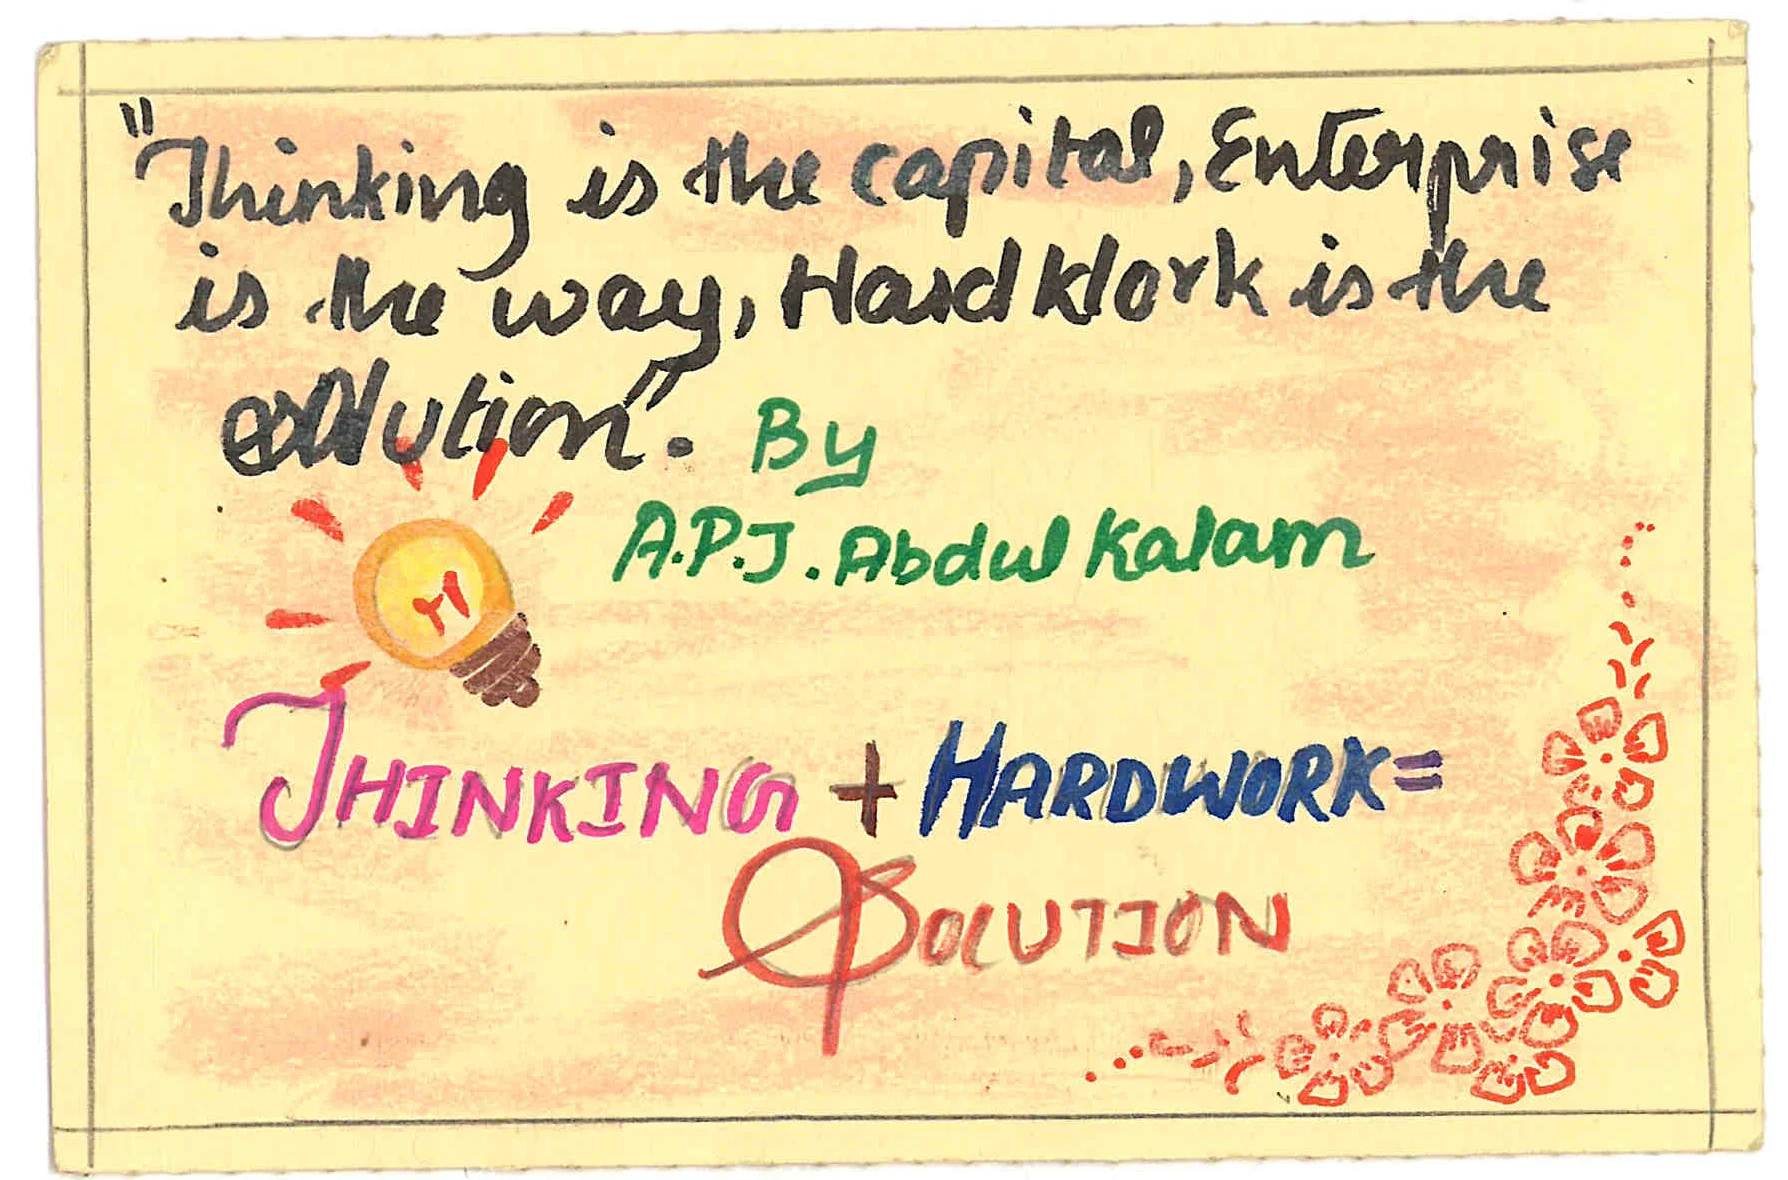 "Thinking is the capital, Enterprise
is the way, Hard Work is the
solution". By
A.P.J. Abdul Kalam
THINKING + HARDWORK =
SOLUTION